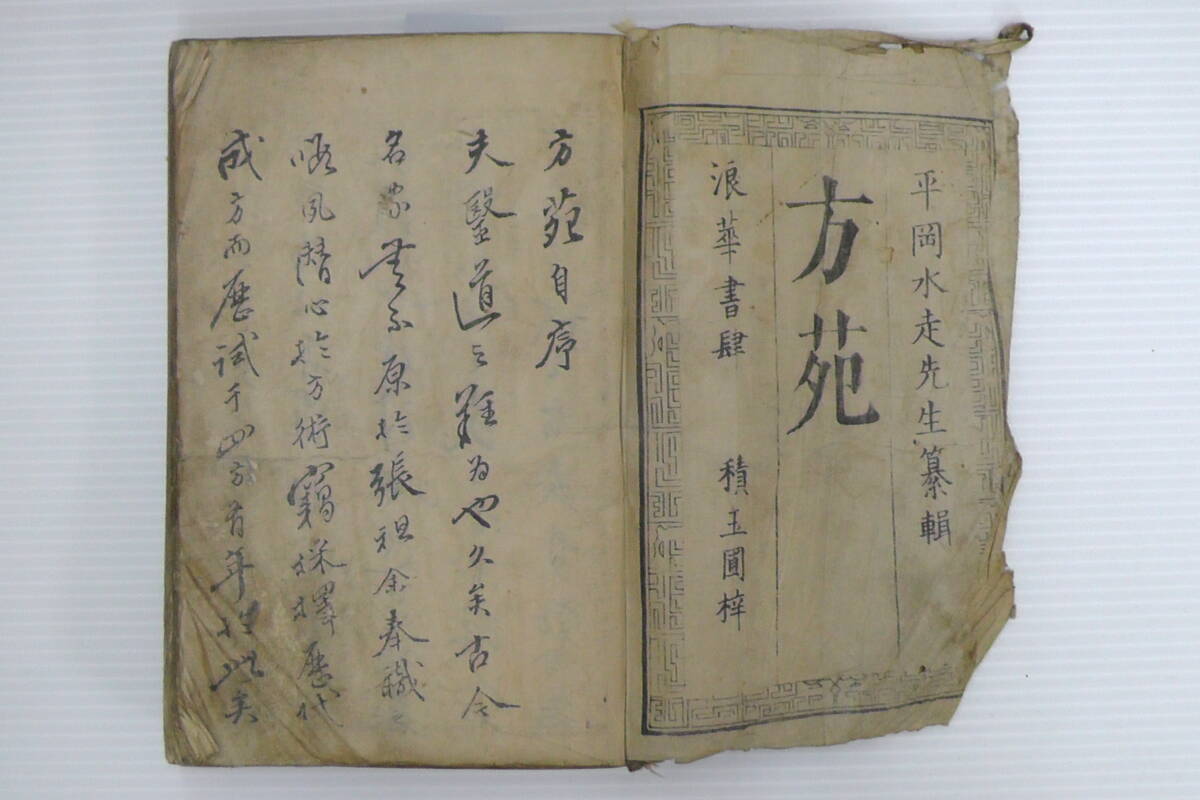 平岡水走先生纂輯
方苑
浪華書肆 積玉圃梓
方苑自序
夫醫道之難為也久矣古今
名家無不原於張祖余奉職之
暇夙潛心於方術竊採擇歷代
成方而歷試于四方有年於此矣